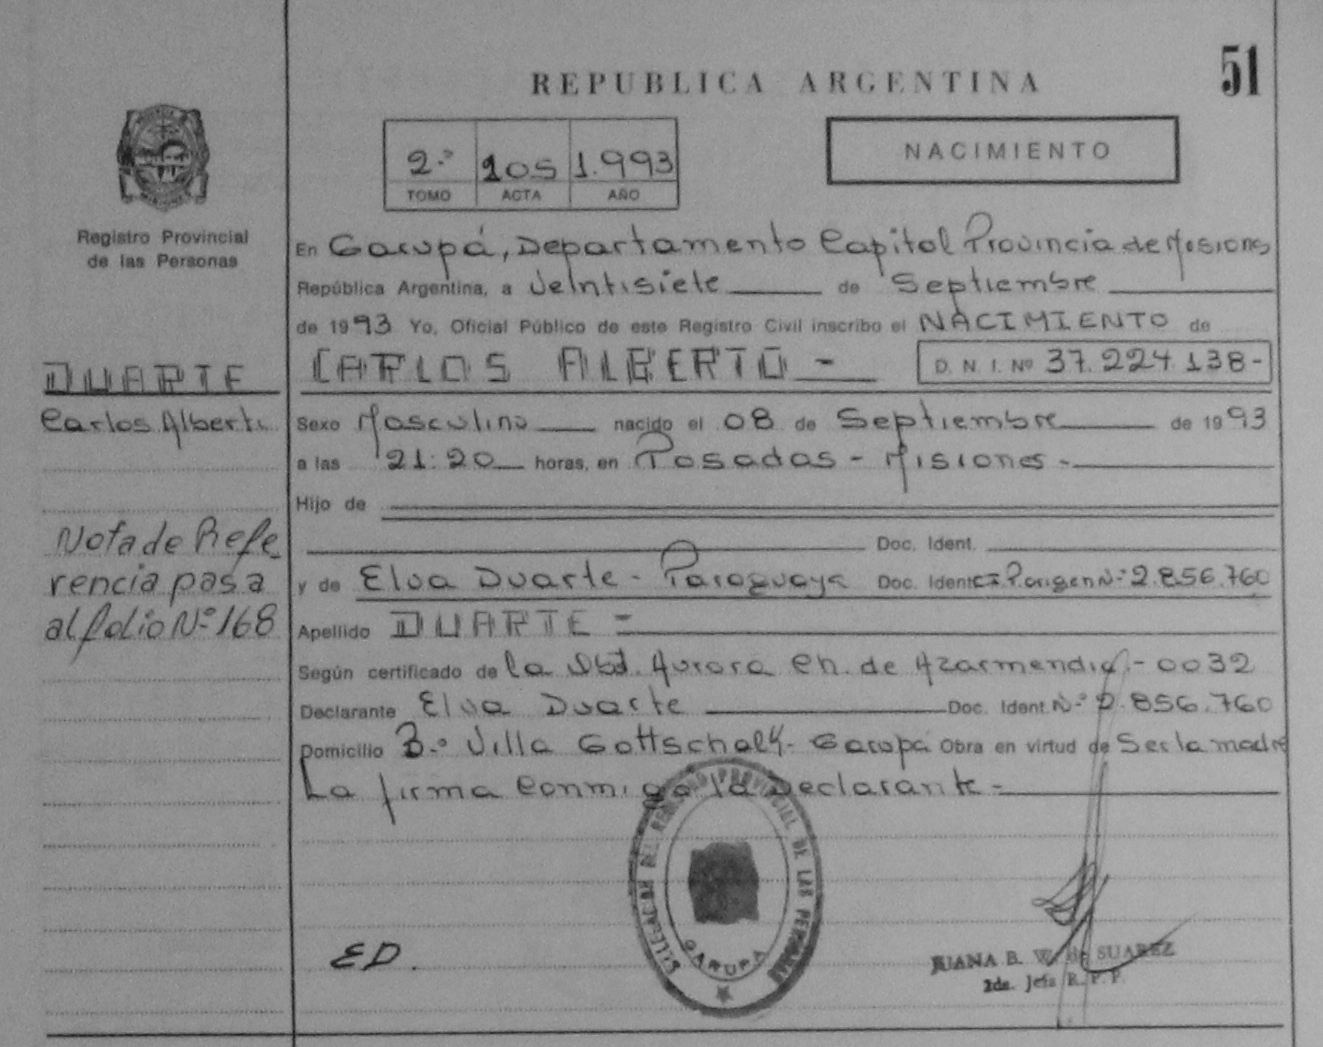 51
REPUBLICA ARGENTINA
2.º 105 1.993
TOMO ACTA AÑO
NACIMIENTO
Registro Provincial
de las Personas
En Garupá, Departamento Capital Provincia de Misiones
República Argentina, a Veintisiete de Septiembre
de 1993 Yo, Oficial Público de este Registro Civil inscribo el NACIMIENTO de
CARLOS ALBERTO - D. N. I. Nº 37.224.138-
DUARTE
Carlos Alberto
Sexo Masculino nacido el 08 de Septiembre de 1993
a las 21:20 horas, en Posadas - Misiones -
Hijo de
Doc. Ident.
Nota de Refe
rencia pasa
al folio Nº 168
y de Elva Duarte - Paraguaya Doc. Ident. C.I. P. origen Nº 2.856.760
Apellido DUARTE =
Según certificado de la Obst. Aurora Ch. de Azarmendia - 0032
Declarante Elva Duarte Doc. Ident. Nº 2.856.760
Domicilio Bº Villa Gottschalk - Garupá Obra en virtud de Ser la madre
La firma conmigo la Declarante -
DELEGACION DEL REGISTRO PROVINCIAL DE LAS PERSONAS
GARUPA
ED.
JUANA B. W. de SUAREZ
2da. Jefa R. P. P.